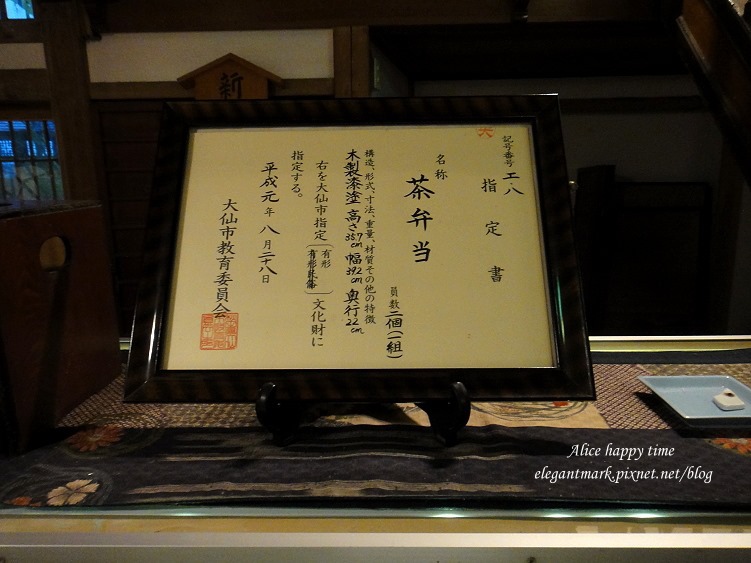 新
記号番号 工・八
指定書
名称
茶弁当
員数 二個(一組)
構造、形式、寸法、重量、材質その他の特徴
木製漆塗 高さ35.7cm 幅39.2cm 奥行22cm
右を大仙市指定(有形 有形民俗)文化財に
指定する。
平成元年八月二十八日
大仙市教育委員会
Alice happy time
elegantmark.pixnet.net/blog